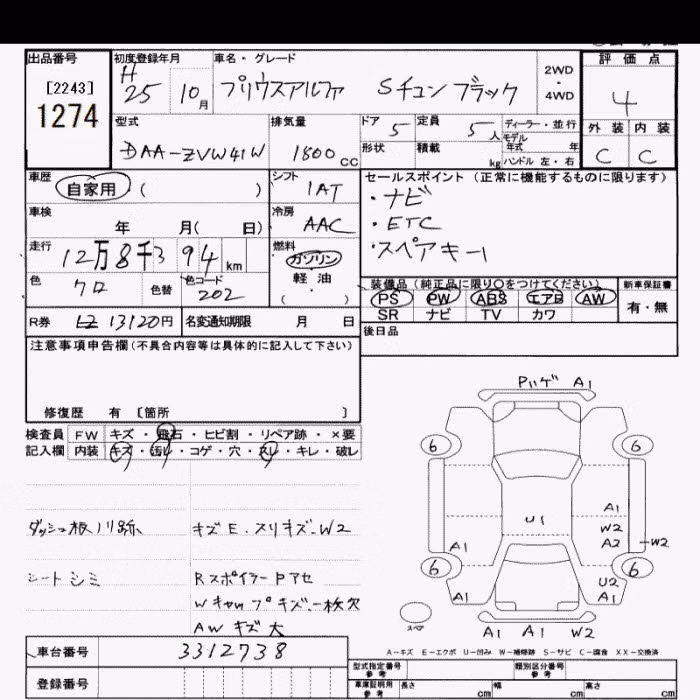 出品番号 初度登録年月 車名・グレード 2WD・4WD 評価点
[2243] H25 10月 プリウスアルファ Sチュンブラック 4
1274
型式 排気量 ドア 5 定員 5人 ディーラー・並行 外装 内装
モデル年式 年
DAA-ZVW41W 1800cc 形状 積載 kg ハンドル 左・右 C C
車歴 自家用 ( ) シフト 1AT セールスポイント(正常に機能するものに限ります)
・ナビ
車検 年 月( 日) 冷房 AAC ・ETC
・スペアキー1
走行 12万8千394km 燃料 ガソリン
軽油
( )
色 クロ 色替 色コード 202
装備品(純正品に限り○をつけてください) 新車保証書
PS PW ABS エアB AW 有・無
SR ナビ TV カワ
R券 13120円 名変通知期限 月 日 後日品
注意事項申告欄(不具合内容等は具体的に記入して下さい)
修復歴 有 〔箇所 〕
検査員 FW キズ・飛石・ヒビ割・リペア跡・×要
記入欄 内装 キズ・汚レ・コゲ・穴・スレ・キレ・破レ
Pハゲ A1
6 6
U1
A1
W2
A2 W2
A1
6 6
U2
A1 A1
スペア
A1 A1 W2
ダッシュ板ノリ跡 キズE.スリキズ.W2
シートシミ RスポイラーPアセ
Wキャップキズ.一枚欠
AWキズ大
A-キズ E-エクボ U-凹み W-補修跡 S-サビ C-腐食 XX-交換済
車台番号 3312738
登録番号
型式指定番号 参考 類別区分番号 参考
車庫証明用 参考 長さ cm 幅 cm 高さ cm